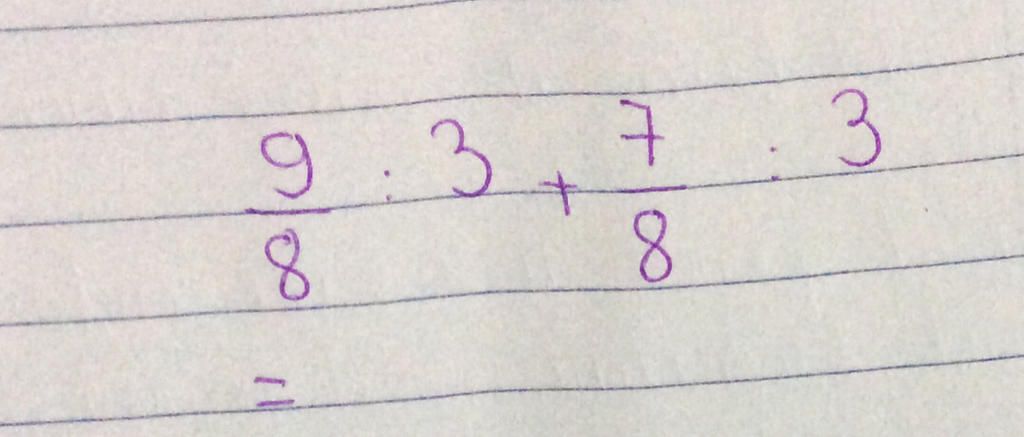 9/8 : 3 + 7/8 : 3
=